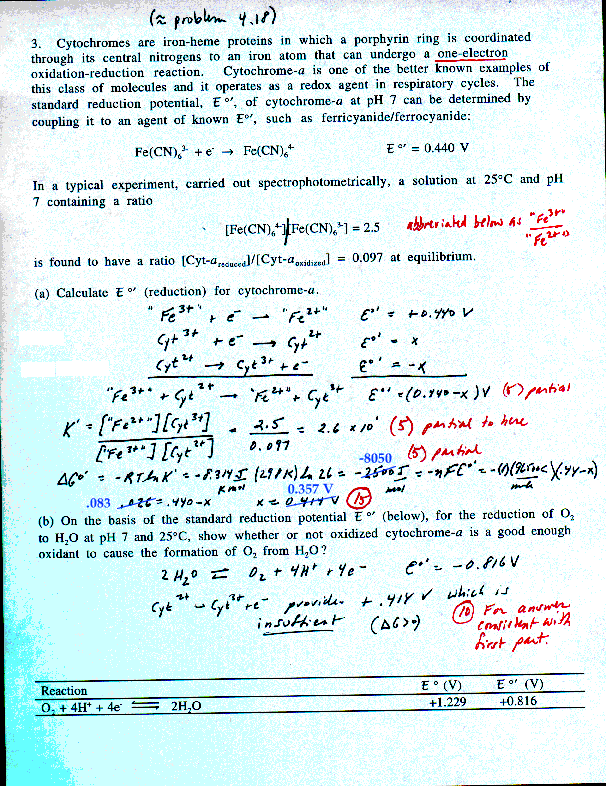 (≈ problem 4.18)
3. Cytochromes are iron-heme proteins in which a porphyrin ring is coordinated
through its central nitrogens to an iron atom that can undergo a one-electron
oxidation-reduction reaction. Cytochrome-a is one of the better known examples of
this class of molecules and it operates as a redox agent in respiratory cycles. The
standard reduction potential, E°', of cytochrome-a at pH 7 can be determined by
coupling it to an agent of known E°', such as ferricyanide/ferrocyanide:
Fe(CN)₆³⁻ + e⁻ → Fe(CN)₆⁴⁻ E°' = 0.440 V
In a typical experiment, carried out spectrophotometrically, a solution at 25°C and pH
7 containing a ratio
[Fe(CN)₆⁴⁻]/[Fe(CN)₆³⁻] = 2.5 abbreviated below as "Fe³⁺"
"Fe²⁺"
is found to have a ratio [Cyt-a_reduced]/[Cyt-a_oxidized] = 0.097 at equilibrium.
(a) Calculate E°' (reduction) for cytochrome-a.
"Fe³⁺" + e⁻ → "Fe²⁺" E°' = +0.440 V
Cyt³⁺ + e⁻ → Cyt²⁺ E°' = x
Cyt²⁺ → Cyt³⁺ + e⁻ E°' = -x
"Fe³⁺" + Cyt²⁺ → "Fe²⁺" + Cyt³⁺ E°' = (0.440-x)V (5) partial
K' = ["Fe²⁺"][Cyt³⁺] / ["Fe³⁺"][Cyt²⁺] = 2.5 / 0.097 = 2.6 x 10¹ (5) partial to here
-8050 (5) partial
ΔG°' = -RT ln K' = -8.314 J / K mol (298K) ln 26 = -2500 J / mol = -nFE°' = -(1)(96500 C / mole)(.44-x)
.083 .026 = .440-x x = 0.357 V 0.414 V (15)
(b) On the basis of the standard reduction potential E°' (below), for the reduction of O₂
to H₂O at pH 7 and 25°C, show whether or not oxidized cytochrome-a is a good enough
oxidant to cause the formation of O₂ from H₂O?
2 H₂O ⇌ O₂ + 4H⁺ + 4e⁻ E°' = -0.816 V
Cyt²⁺ → Cyt³⁺ + e⁻ provides +.414 V which is
insufficient (ΔG>0)
(10) For answer
consistent with
first part.
Reaction E° (V) E°' (V)
O₂ + 4H⁺ + 4e⁻ ⇌ 2H₂O +1.229 +0.816